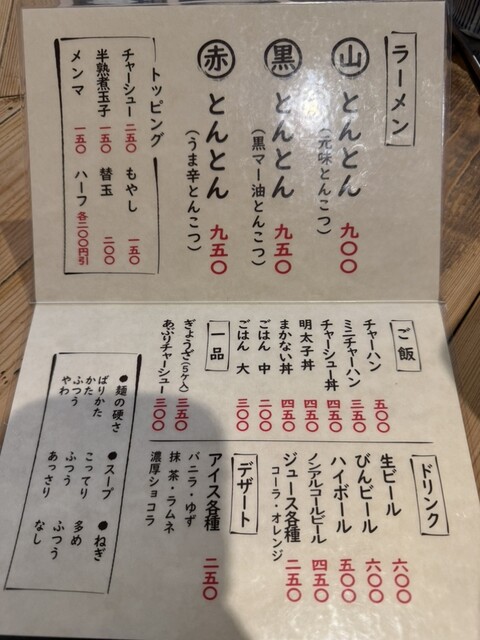 ラーメン
山 とんとん 九〇〇
(元味とんこつ)
黒 とんとん 九五〇
(黒マー油とんこつ)
赤 とんとん 九五〇
(うま辛とんこつ)
トッピング
チャーシュー 二五〇
もやし 一五〇
半熟煮玉子 一五〇
替玉 二〇〇
メンマ 一五〇
ハーフ 各二〇〇円引
ご飯
チャーハン 五〇〇
ミニチャーハン 三五〇
チャーシュー丼 四五〇
明太子丼 四五〇
まかない丼 四五〇
ごはん 中 二〇〇
ごはん 大 三〇〇
一品
ぎょうざ(5ケ入) 三五〇
あぶりチャーシュー 三〇〇
ドリンク
生ビール 六〇〇
びんビール 六〇〇
ハイボール 五〇〇
ノンアルコールビール 四五〇
ジュース各種 二五〇
コーラ・オレンジ
デザート
アイス各種 二五〇
バニラ・ゆず
抹茶・ラムネ
濃厚ショコラ
●麺の硬さ
ばりかた
かた
ふつう
やわ
●スープ
こってり
ふつう
あっさり
●ねぎ
多め
ふつう
なし